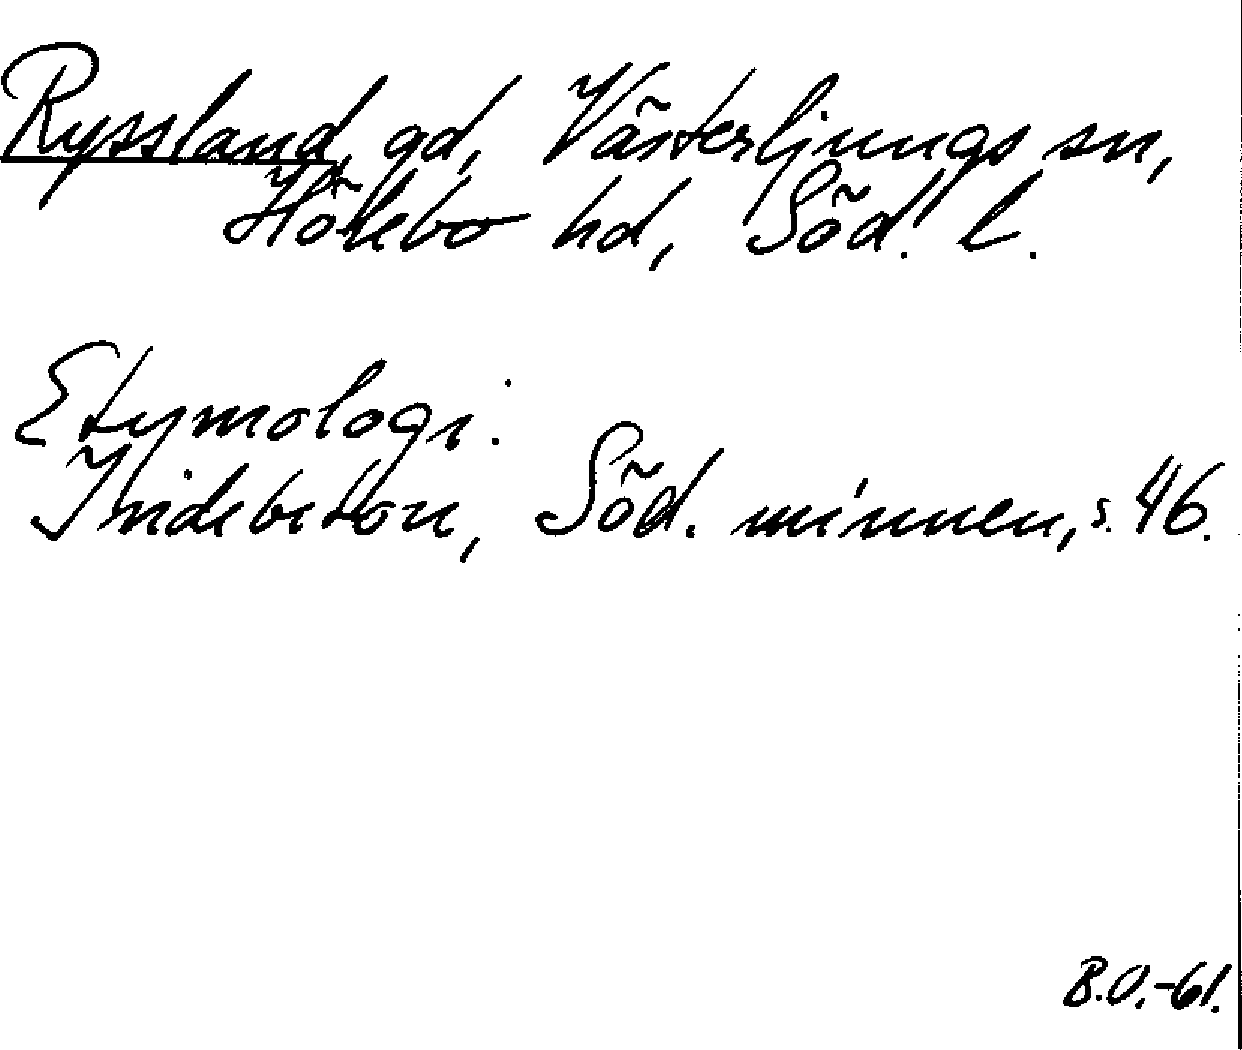 Ryssland, gd, Västerljungs sn,
Hölebo hd, Söd. l.
Etymologi:
Indebetou, Söd. minnen, s. 46.
B.O.-61.